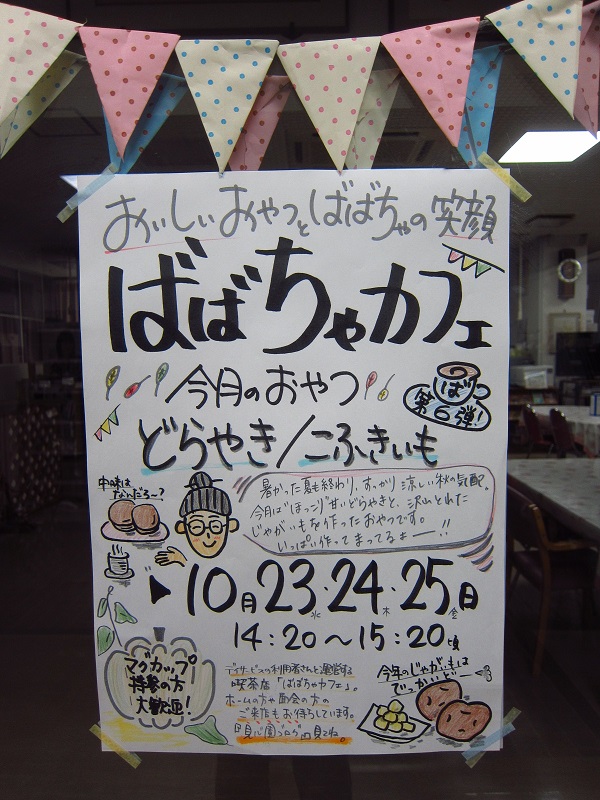 おいしいおやつとばばちゃの笑顔
ばばちゃカフェ
今月のおやつ
ばっ
第6弾!
どらやき/こふきいも
中味は
なんだろ〜?
暑かった夏も終わり、すっかり涼しい秋の気配。
今月は"ほっこり"甘いどらやきと、沢山とれた
じゃがいもを作ったおやつです。
いっぱい作ってまってるょー!!
▶10月23水・24木・25金日
14:20〜15:20頃
マグカップ
持参の方
大歓迎!
デイサービスの利用者さんと運営する
喫茶店「ばばちゃカフェ」。
ホームの方や面会の方の
ご来店もお待ちしています。
見てね。
今年のじゃがいもは
でっかいどー